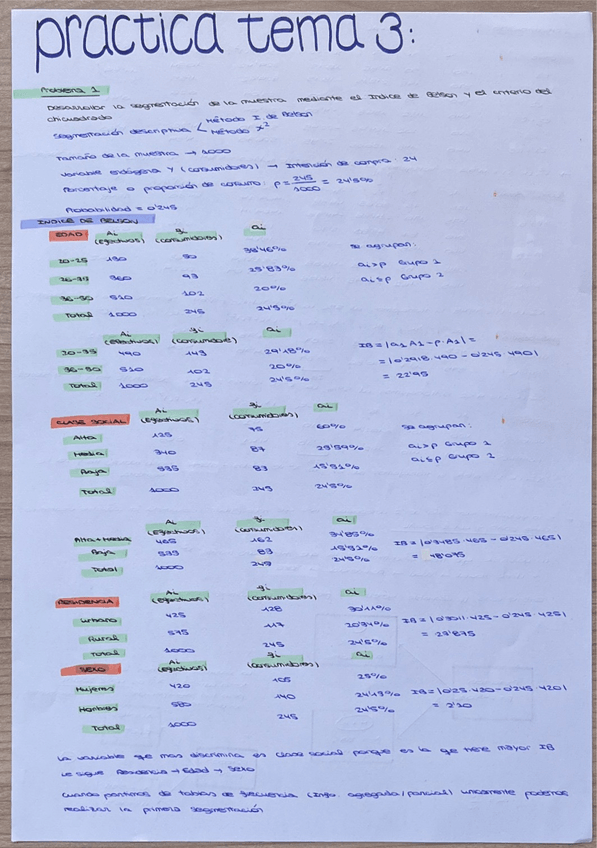 practica tema 3:
Problema 1
Desarrollar la segmentación de la muestra mediante el Indice de Belson y el criterio del
chicuadrado
Segmentación descriptiva < Método I de Belson
Método x²
Tamaño de la muestra → 1000
Variable endógena Y (consumidores) → Intención de compra: 24
Porcentaje o proporción de consumo: p = 245/1000 = 24'5%
Probabilidad = 0'245
INDICE DE BELSON
EDAD Ai (efectivos) yi (consumidores) ai
38'46% se agrupan:
20-25 130 50
25'83% ai>p Grupo 1
26-35 360 93
20% ai≤p Grupo 2
36-50 510 102
Total 1000 245 24'5%
Ai (efectivos) yi (consumidores) ai
20-35 490 143 29'18% IB = |a1 A1 - p · A1| =
36-50 510 102 20% = |0'2918 · 490 - 0'245 · 490|
Total 1000 245 24'5% = 22'95
CLASE SOCIAL Ai (efectivos) yi (consumidores) ai
Alta 125 75 60% se agrupan:
Media 340 87 25'59% ai>p Grupo 1
Baja 535 83 15'51% ai≤p Grupo 2
Total 1000 245 24'5%
Ai (efectivos) yi (consumidores) ai
Alta+Media 465 162 34'85% IB = |0'3485 · 465 - 0'245 · 465|
Baja 535 83 15'51% = 48'075
Total 1000 245 24'5%
RESIDENCIA Ai (efectivos) yi (consumidores) ai
Urbano 425 128 30'11% IB = |0'3011 · 425 - 0'245 · 425|
Rural 575 117 20'34% = 23'875
Total 1000 245 24'5%
SEXO Ai (efectivos) yi (consumidores) ai
Mujeres 420 105 25%
Hombres 580 140 24'13% IB = |0'25 · 420 - 0'245 · 420|
Total 1000 245 24'5% = 2'10
La variable que mas discrimina es clase social porque es la que tiene mayor IB
Le sigue Residencia → Edad → Sexo
Cuando partimos de tablas de frecuencia (info. agregada/parcial) unicamente podemos
realizar la primera segmentación